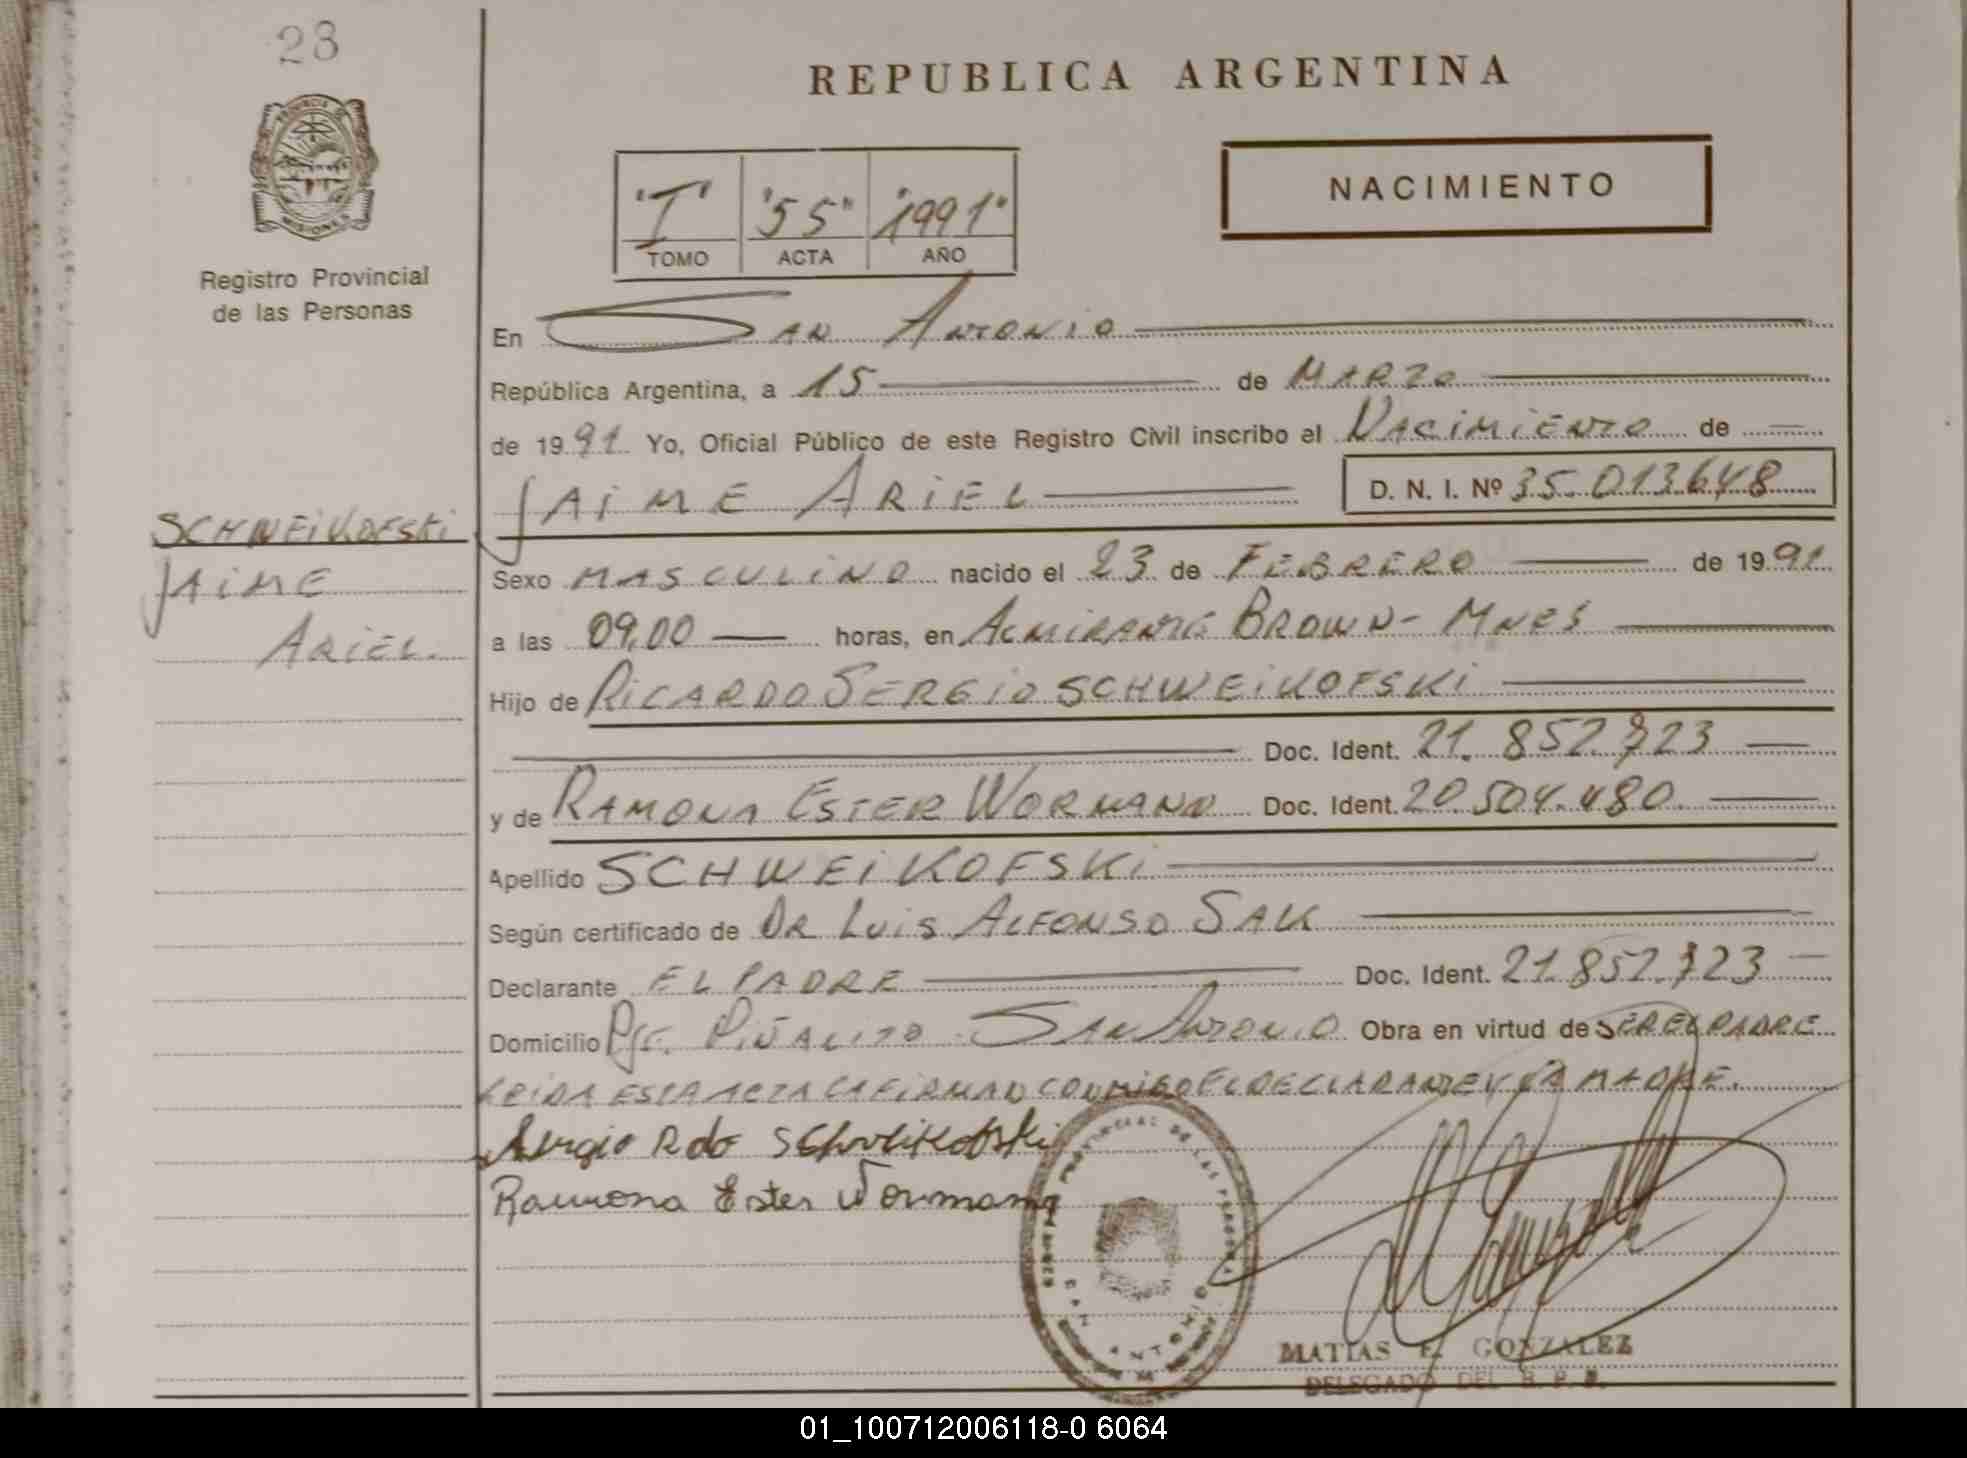 23
REPUBLICA ARGENTINA
PROVINCIA DE
MISIONES
Registro Provincial
de las Personas
"I" "55" "1991"
TOMO ACTA AÑO
NACIMIENTO
En SAN ANTONIO
República Argentina, a 15 de MARZO
de 1991 Yo, Oficial Público de este Registro Civil inscribo el NACIMIENTO de
JAIME ARIEL D. N. I. Nº 35.013648
SCHWEIKOFSKI
JAIME
ARIEL.
Sexo MASCULINO nacido el 23 de FEBRERO de 1991
a las 09,00 horas, en ALMIRANTE BROWN - MNES
Hijo de RICARDO SERGIO SCHWEIKOFSKI
Doc. Ident. 21.852.723
y de RAMONA ESTER WORMANN Doc. Ident. 20.504.480.
Apellido SCHWEIKOFSKI
Según certificado de DR LUIS ALFONSO SAK
Declarante EL PADRE Doc. Ident. 21.852.723
Domicilio Pje. PIÑALITO SAN ANTONIO Obra en virtud de SER EL PADRE
LEIDA ESTA ACTA LA FIRMAN CONMIGO EL DECLARANTE Y LA MADRE.
Sergio Rdo Schweikofski
Ramona Ester Wormann
PROVINCIAL DE LAS PERSONAS
SAN ANTONIO
MATIAS F. GONZALEZ
DELEGADO DEL R. P. P.
01_100712006118-0 6064